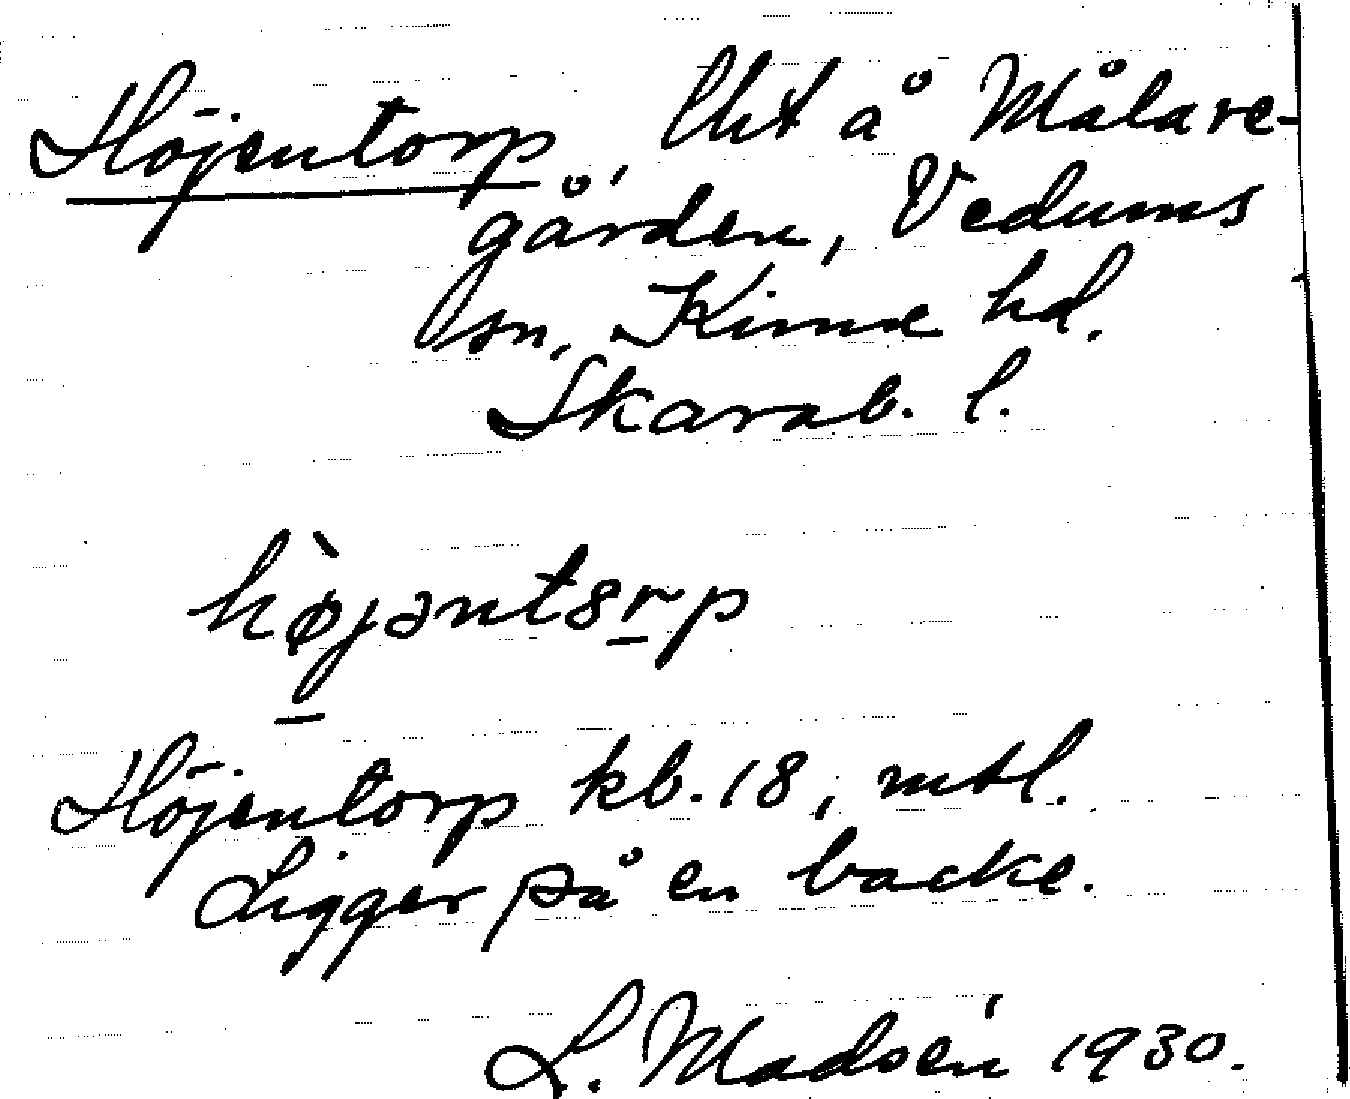 Höjentorp, lht å Målare-
gården, Vedums
sn, Kinne hd.
Skarab. l.
hø̀jəntȣrp
Höjentorp kb. 18, mtl.
Ligger på en backe.
L. Madsén 1930.